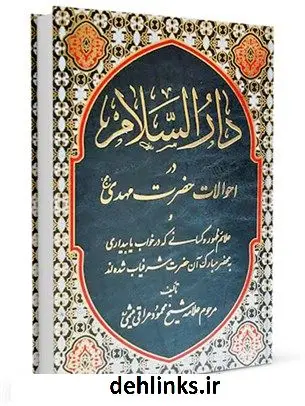 دارُ السَّلام
در
احوالات حضرت مهدی
و
علائم ظهور و کسانی که در خواب یا بیداری
به محضر مبارک آن حضرت شرفیاب شده اند
تألیف
مرحوم علامه شیخ محمود عراقی میثمی
dehlinks.ir